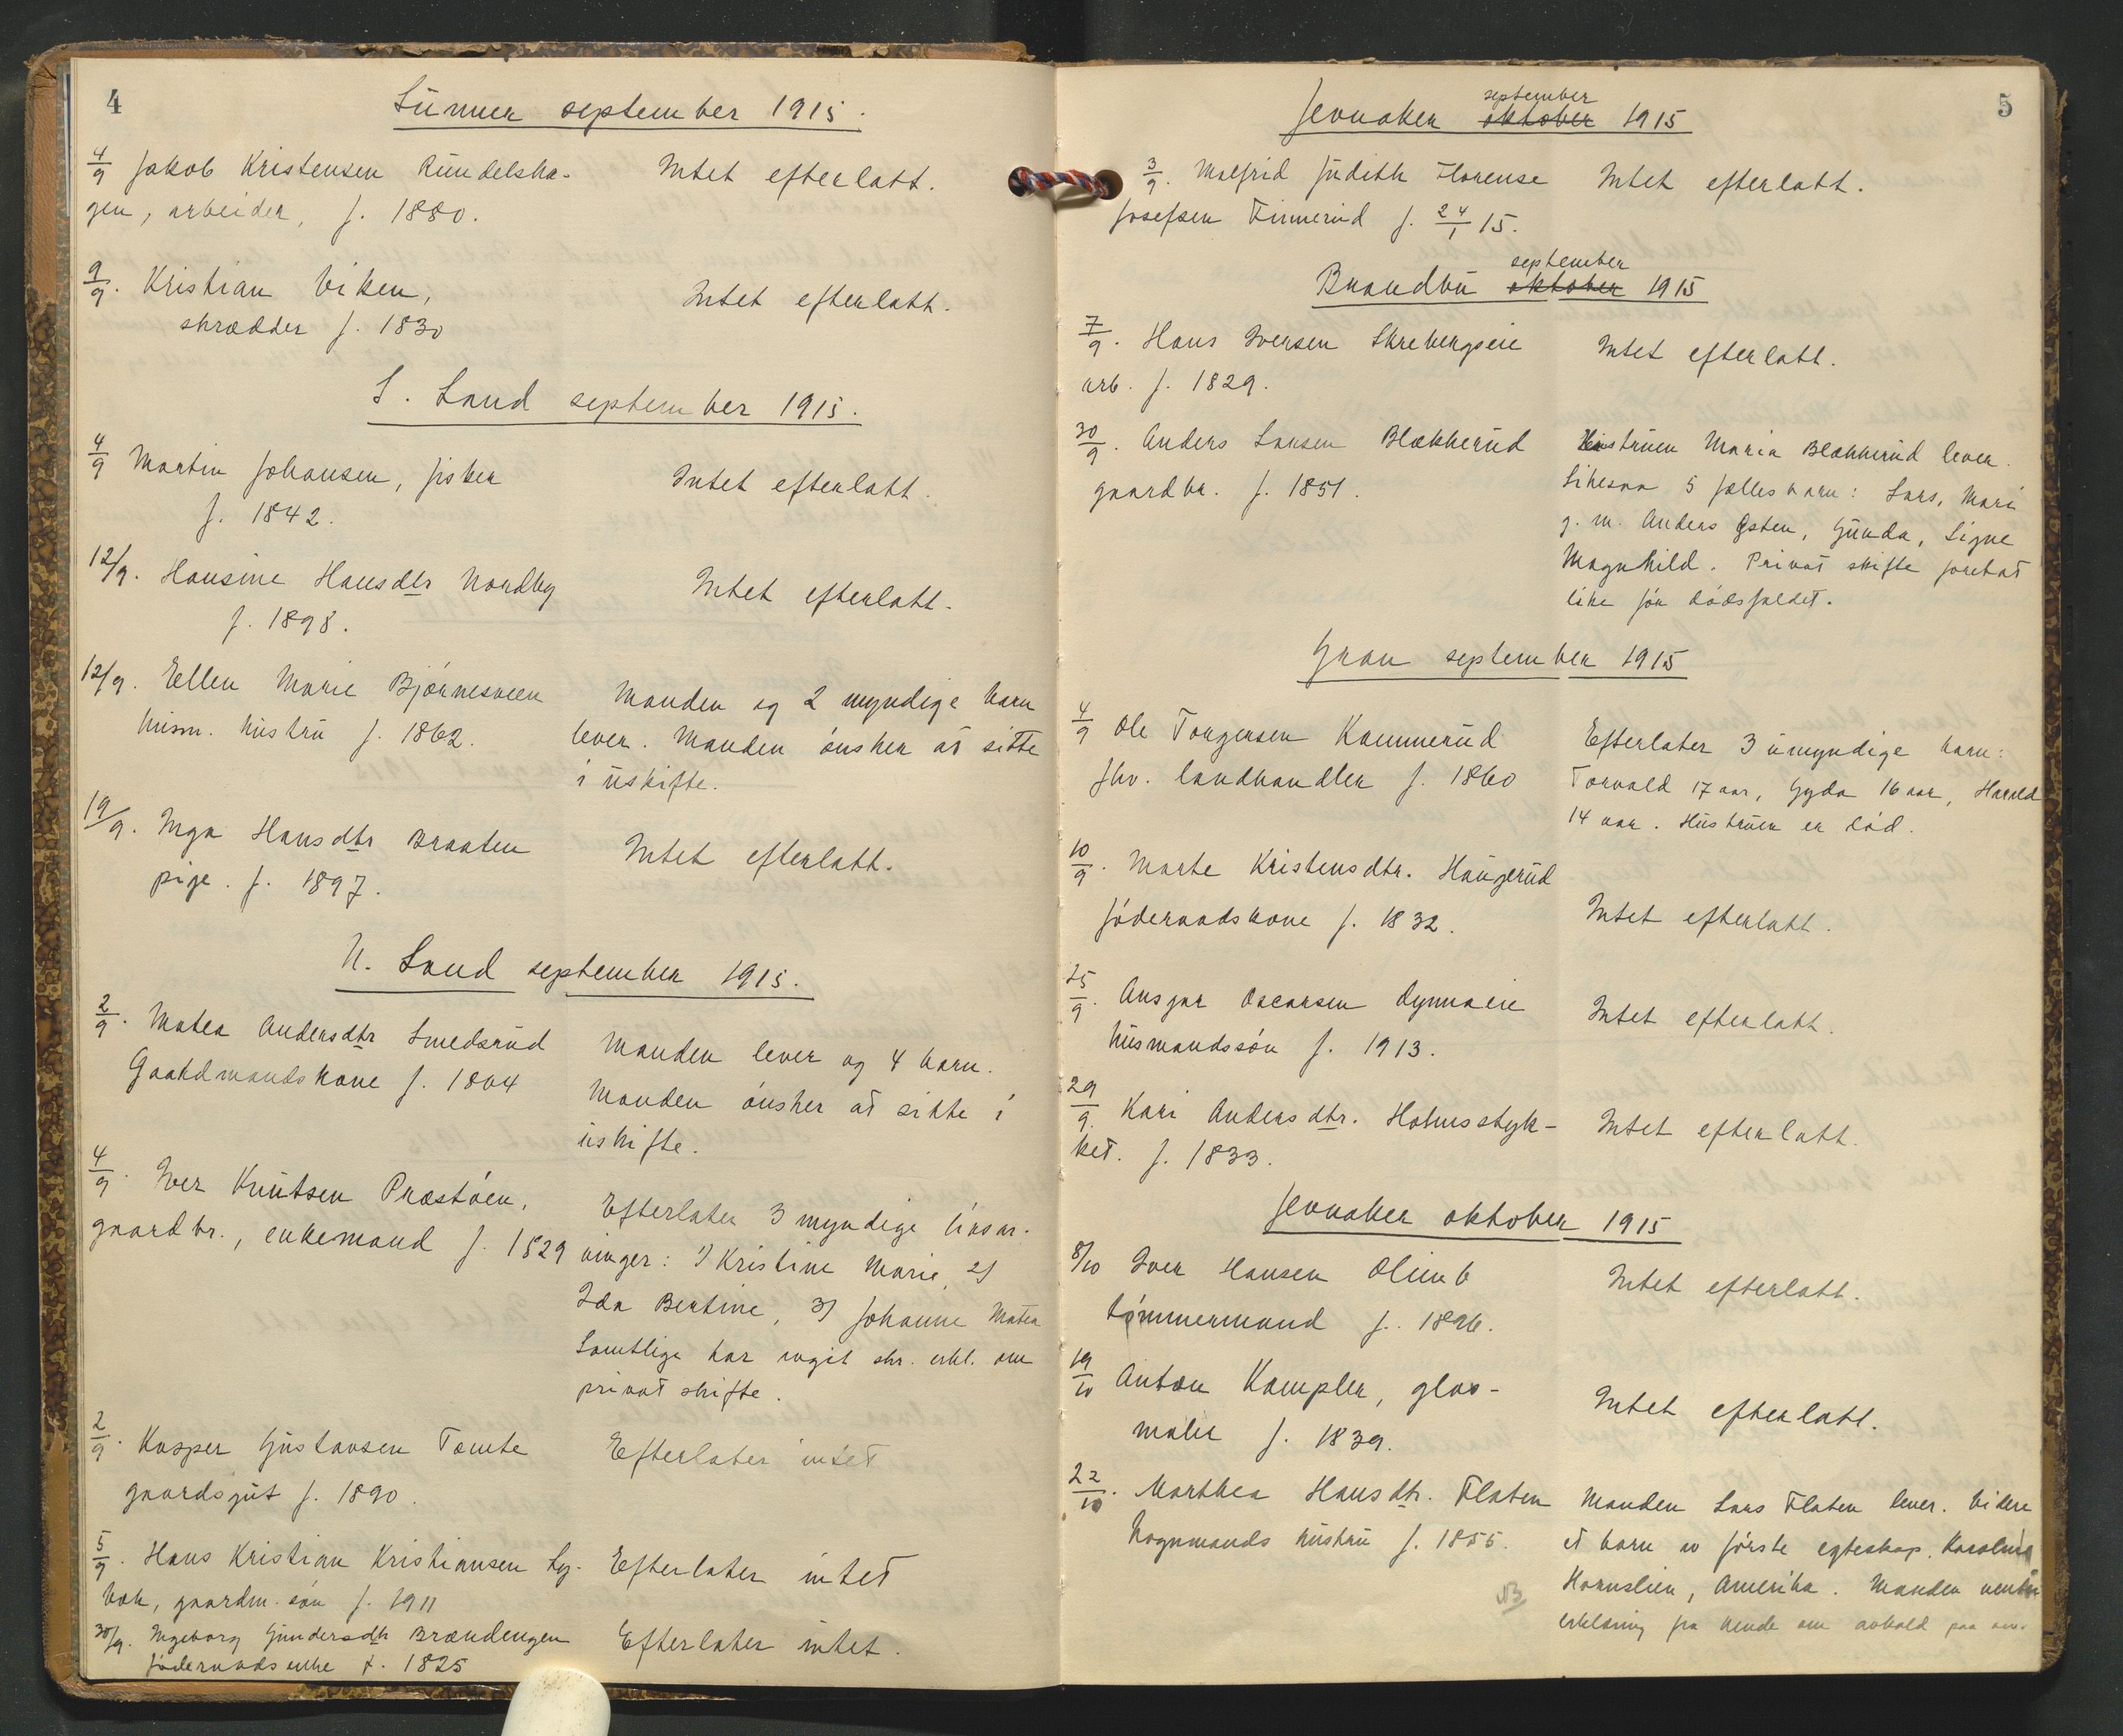 4
Lunner september 1915.
4/9 Jakob Kristensen Rundelsha-
gen, arbeider, f. 1880.
Intet efterlatt.
9/9. Kristian Viken,
skrædder f. 1830
Intet efterlatt.
S. Land september 1915.
4/9 Martin Johansen, fisker
f. 1842.
Intet efterlatt.
12/9. Hansine Hansdtr Nordby
f. 1898.
Intet efterlatt.
12/9. Ellen Marie Bjørnesveen
husm. hustru f. 1862.
Manden og 2 myndige barn
lever. Manden ønsker at sitte
i uskifte.
19/9. Inga Hansdtr Braaten
pige. f. 1897.
Intet efterlatt.
N. Land september 1915.
2/9. Matea Andersdtr Smedsrud
Gaardmandskone f. 1864
Manden lever og 4 barn.
Manden ønsker at sitte i
uskifte.
4/9. Iver Knutsen Præstøen,
gaardbr., enkemand f. 1829
Efterlater 3 myndige livsar-
vinger: 1) Kristine Marie, 2)
Ida Bertine, 3) Johanne Matea
Samtlige har avgit skr. erkl. om
privat skifte.
2/9. Kasper Gustavsen Tomte
gaardsgut f. 1890.
Efterlater intet
5/9. Hans Kristian Kristiansen Ly-
bæk, gaardm. søn f. 1911
Efterlater intet
30/9. Ingeborg Gundersdtr Brændengen
føderaadsenke f. 1825
Efterlater intet.
5
september
Jevnaker oktober 1915
3/9. Malfrid Judith Florense
Josefsen Finnerud f. 24/1 15.
Intet efterlatt.
september
Brandbu oktober 1915
7/9. Hans Iversen Skrebergseie
arb. f. 1829.
Intet efterlatt.
30/9. Anders Larsen Blækkerud
gaardbr. f. 1851.
Hustruen Maria Blækkerud lever.
Likesaa 5 fælles barn: Lars, Mari
g. m. Anders Østen, Gunda, Signe
Magnhild. Privat skifte foretat
like før dødsfaldet.
Gran september 1915
4/9 Ole Torgersen Kammerud
fhv. landhandler f. 1860
Efterlater 3 umyndige barn:
Torvald 17 aar, Gyda 16 aar, Harald
14 aar. Hustruen er død.
10/9. Marte Kristensdtr. Haugerud
føderaadskone f. 1832.
Intet efterlatt.
25/9. Ansgar Oscarsen Dynnaeie
husmandssøn f. 1913.
Intet efterlatt.
29/9. Kari Andersdtr. Holmsstyk-
ket. f. 1833.
Intet efterlatt.
Jevnaker oktober 1915
8/10 Iver Hansen Olimb
tømmermand f. 1826.
Intet efterlatt.
19/10 Anton Kampler, glas-
maler f. 1839.
Intet efterlatt.
22/10. Marthea Hansdtr. Flaten
Vognmands hustru f. 1855.
Manden Lars Flaten lever. Videre
et barn av første egteskap, Karoline
Hornslien, Amerika. Manden venter
erklæring fra hende om avkald paa arv.
NB